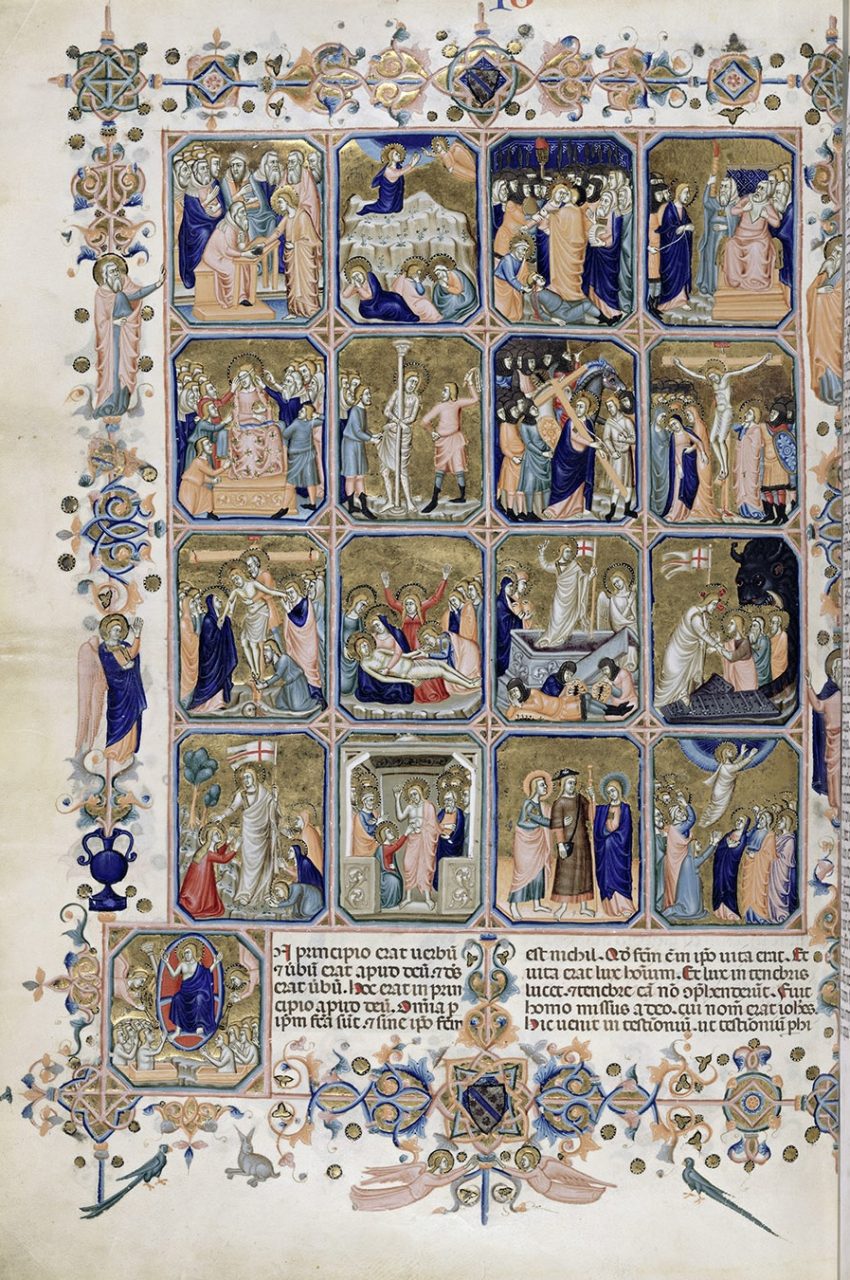 N principio erat uerbū
⁊ ūbū erat apud deū ⁊ ds̄
erat ūbū. hoc erat in prin
cipio apud deū. Omnia p
ip̄m fc̄a sūt ⁊ sine ip̄o fc̄m
est nichil. Qd̄ fc̄m ē in ip̄o uita erat. Et
uita erat lux hoīum. Et lux in tenebris
lucet. ⁊ tenebre eā nō ꝯp̄henderūt. Fuit
homo missus a deo. cui nom̄ erat ioh̄es.
hic uenit in testioniū. ut testioniū phi